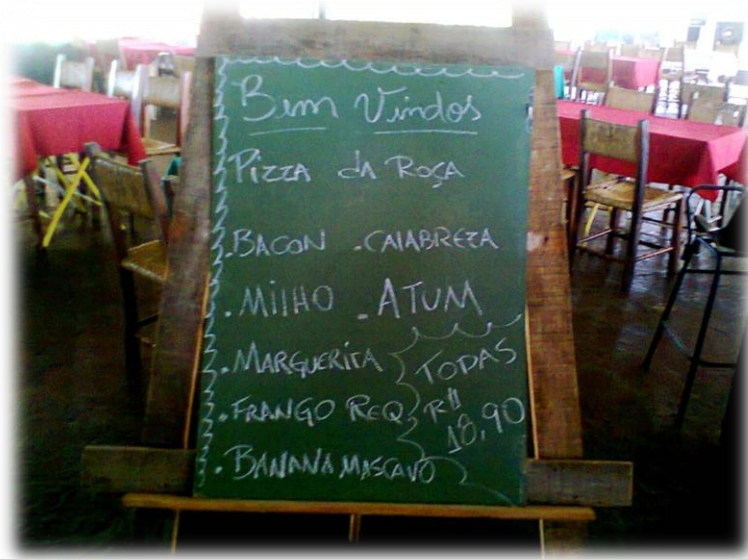 Bem Vindos
Pizza da Roça
.BACON .CALABREZA
.MILHO .ATUM
.MARGUERITA
.FRANGO REQ.
.BANANA MASCAVO
TODAS
R$
18,90